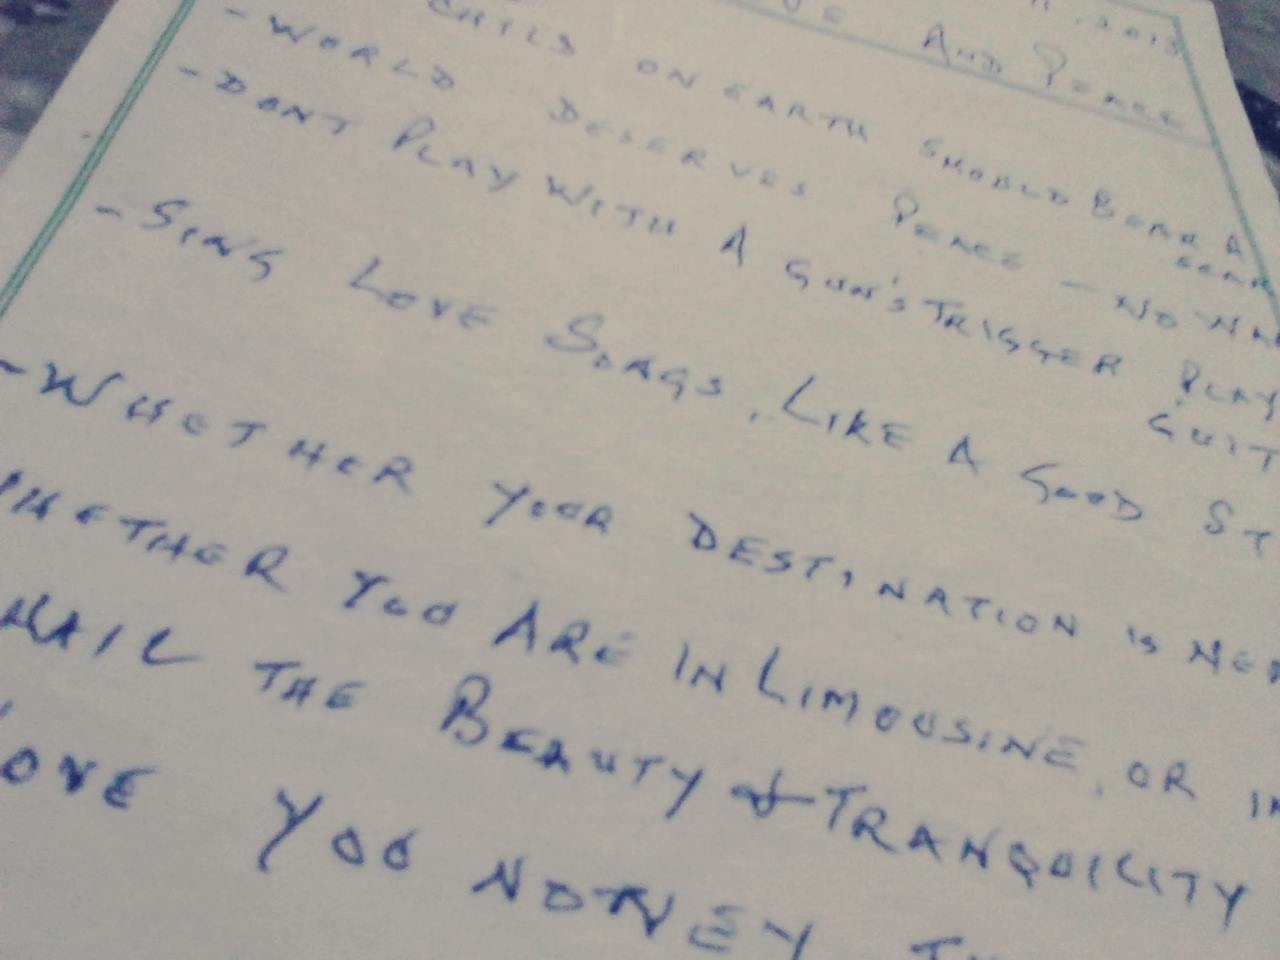 AND PEACE
CHILD ON EARTH SHOULD BEAR A
- WORLD DESERVES PEACE - NO
- DONT PLAY WITH A GUN'S TRIGGER PLAY
- SING LOVE SONGS, LIKE A GOOD
- WHETHER YOUR DESTINATION IS
WHETHER YOU ARE IN LIMOUSINE, OR IN
HAIL THE BEAUTY & TRANQUILITY
LOVE YOU